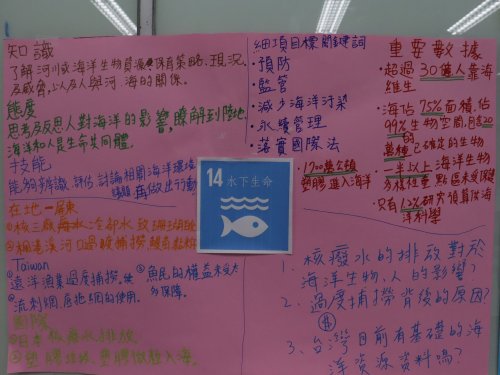 知識
了解河川及海洋生物資源、保育策略、現況
及威脅,以及人與河、海的關係。
態度
思考及反思人對海洋的影響,瞭解到陸地、
海洋和人是生命共同體。
技能
能夠辨識、評估、討論相關海洋環境
議題 再做出行動
在地—屏東
①核三廠海水冷卻水致珊瑚
②楓港溪河口過度捕撈
Taiwan
①遠洋漁業過度捕撈
②流刺網、底拖網的使用
③漁民的權益未受太
多保障。
國際
①日本核廢水排放
②塑膠垃圾、塑膠微粒入海。
細項目標關鍵詞
·預防
·監管
·減少海洋汙染
·永續管理
·落實國際法
14 水下生命
重要數據
·超過30億人靠海
維生
·海佔75%面積,佔
99%生物空間,包含20
萬種已確定的生物
·一半以上海洋生物
多樣性重點區未受保護
·只有1.2%研究預算做海
洋科學
·1700萬公噸
塑膠進入海洋
1、核廢水的排放對於
海洋生物、人的影響?
2、過度捕撈背後的原因?
3、台灣目前有基礎的海
洋資源資料嗎?